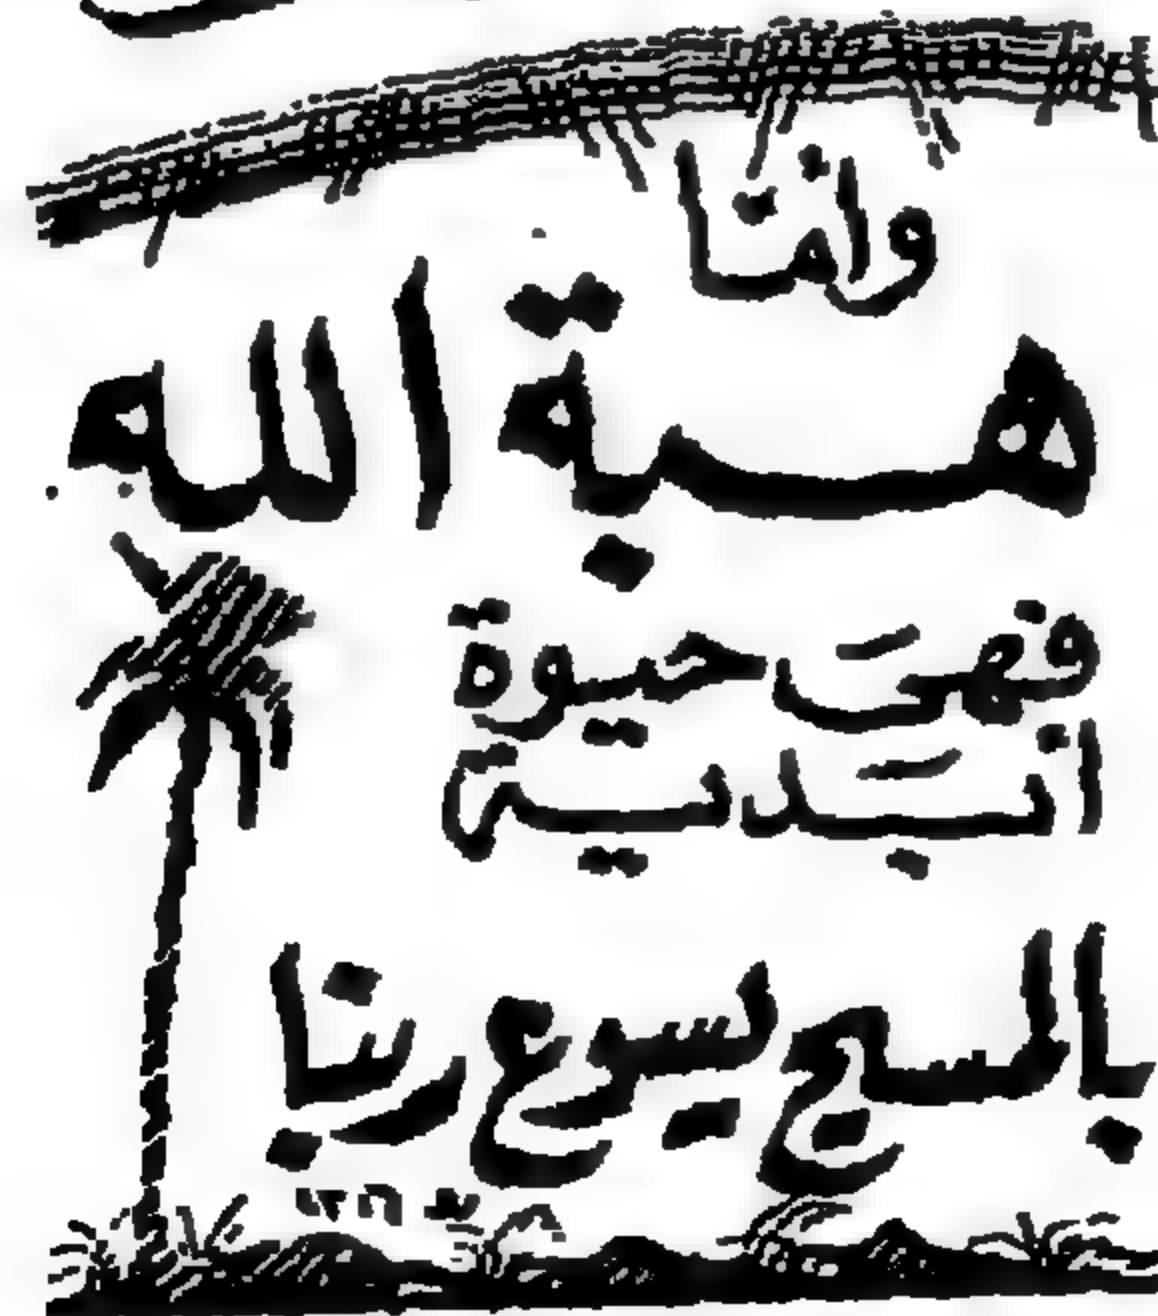 وامّا
هبة الله
فهيَ حيوة
ابَدية
بالمسيح يسوع ربنا